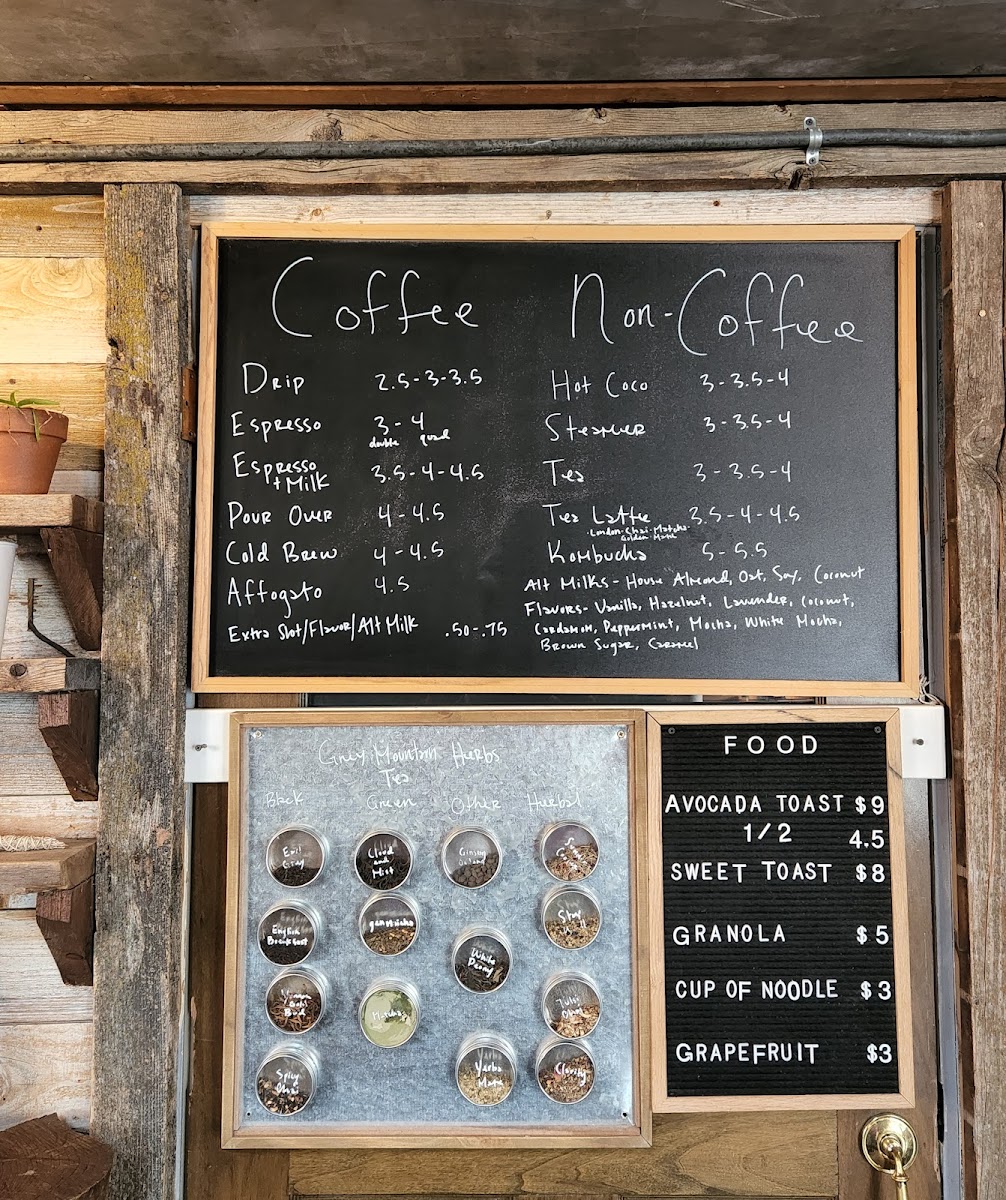 Coffee
Drip 2.5-3-3.5
Espresso 3-4
double quad
Espresso
+Milk 3.5-4-4.5
Pour Over 4-4.5
Cold Brew 4-4.5
Affogato 4.5
Extra Shot/Flavor/Alt Milk .50-.75
Non-Coffee
Hot Coco 3-3.5-4
Steamer 3-3.5-4
Tea 3-3.5-4
Tea Latte 3.5-4-4.5
·London·Chai·Matcha·
Golden
Kombucha 5-5.5
Alt Milks-House Almond, Oat, Soy, Coconut
Flavors-Vanilla, Hazelnut, Lavender, Coconut,
Cardamom, Peppermint, Mocha, White Mocha,
Brown Sugar, Caramel
Grey Mountain Herbs
Tea
Black Green Other Herbal
Earl
Grey
English
Breakfast
Bud
Spicy
Chai
Cloud
and
Mist
genmaicha
Matcha
Ginseng
Oolong
White
Peony
Yerba
Mate
Clarity
FOOD
AVOCADA TOAST $9
1/2 4.5
SWEET TOAST $8
GRANOLA $5
CUP OF NOODLE $3
GRAPEFRUIT $3